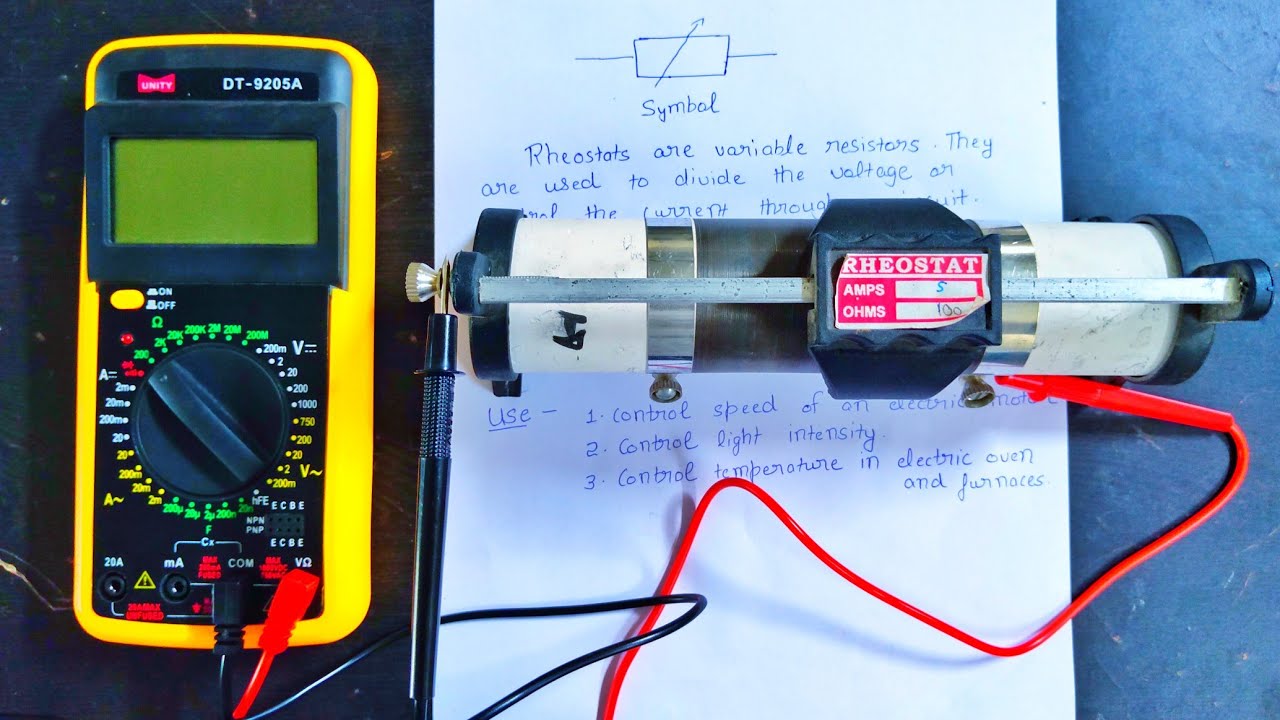 UNITY DT-9205A
ON
OFF
Ω
200 2K 20K 200K 2M 20M 200M
V
200m
2
20
200
1000
750
200
20
2
200m
V~
A
2m
20m
200m
20
20
200m
2m
A~
200μ 20μ 2μ 200n 20n
F
hFE
Cx
E C B E
NPN
PNP
E C B E
20A mA COM VΩ
MAX
200mA
FUSED
MAX
20A MAX
UNFUSED
Symbol
Rheostats are variable resistors. They
are used to divide the voltage or
the current through
RHEOSTAT
AMPS 5
OHMS 100
Use - 1. Control speed of an electric
2. Control light intensity.
3. Control temperature in electric oven
and furnaces.